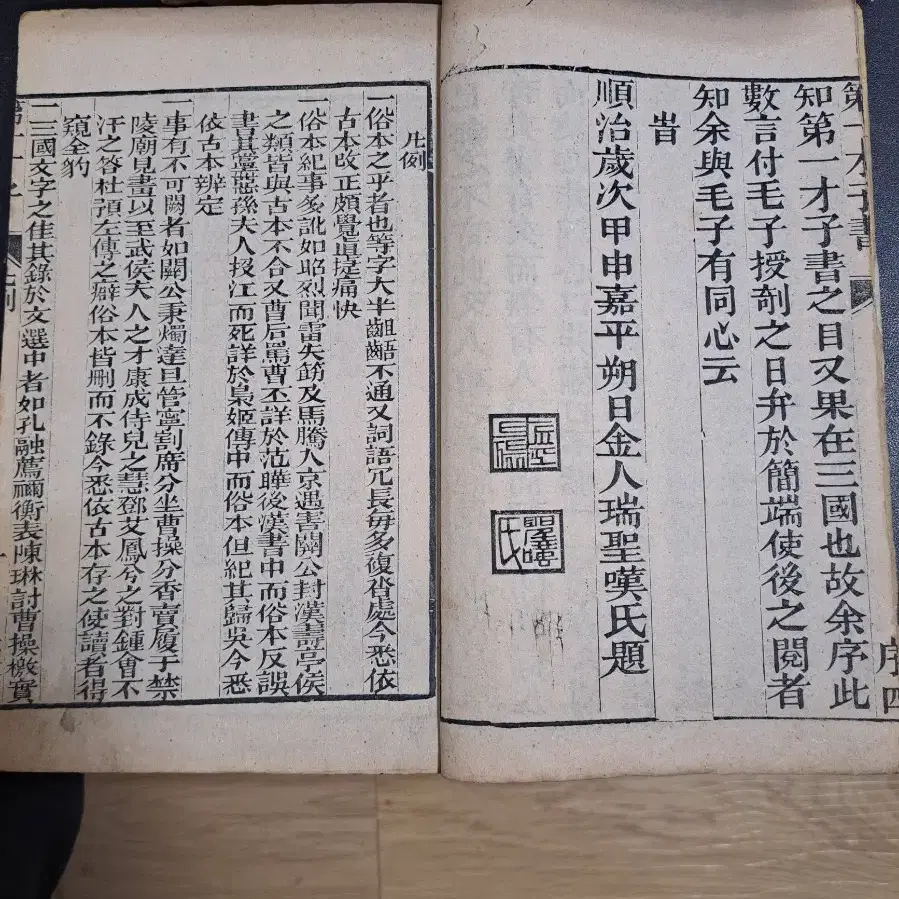 第一才子書
序四
知第一才子書之目又果在三國也故余序此
數言付毛子授剞之日弁於簡端使後之閱者
知余與毛子有同心云
旹
順治歲次甲申嘉平朔日金人瑞聖嘆氏題
聖嘆氏
凡例
一俗本之乎者也等字大半齟齬不通又詞語冗長每多復沓處今悉依
古本改正頗覺直捷痛快
一俗本紀事多訛如昭烈聞雷失筯及馬騰入京遇害關公封漢壽亭侯
之類皆與古本不合又曹后罵曹丕詳於范曄後漢書中而俗本反誤
書其黨惡孫夫人投江而死詳於梟姬傳中而俗本但紀其歸吳今悉
依古本辨定
一事有不可闕者如關公秉燭達旦管寧割席分坐曹操分香賣履于禁
陵廟見畫以至武侯夫人之才康成侍兒之慧鄧艾鳳兮之對鍾會不
汗之答杜預左傳之癖俗本皆刪而不錄今悉依古本存之使讀者得
窺全豹
一三國文字之佳其錄於文選中者如孔融薦禰衡表陳琳討曹操檄實